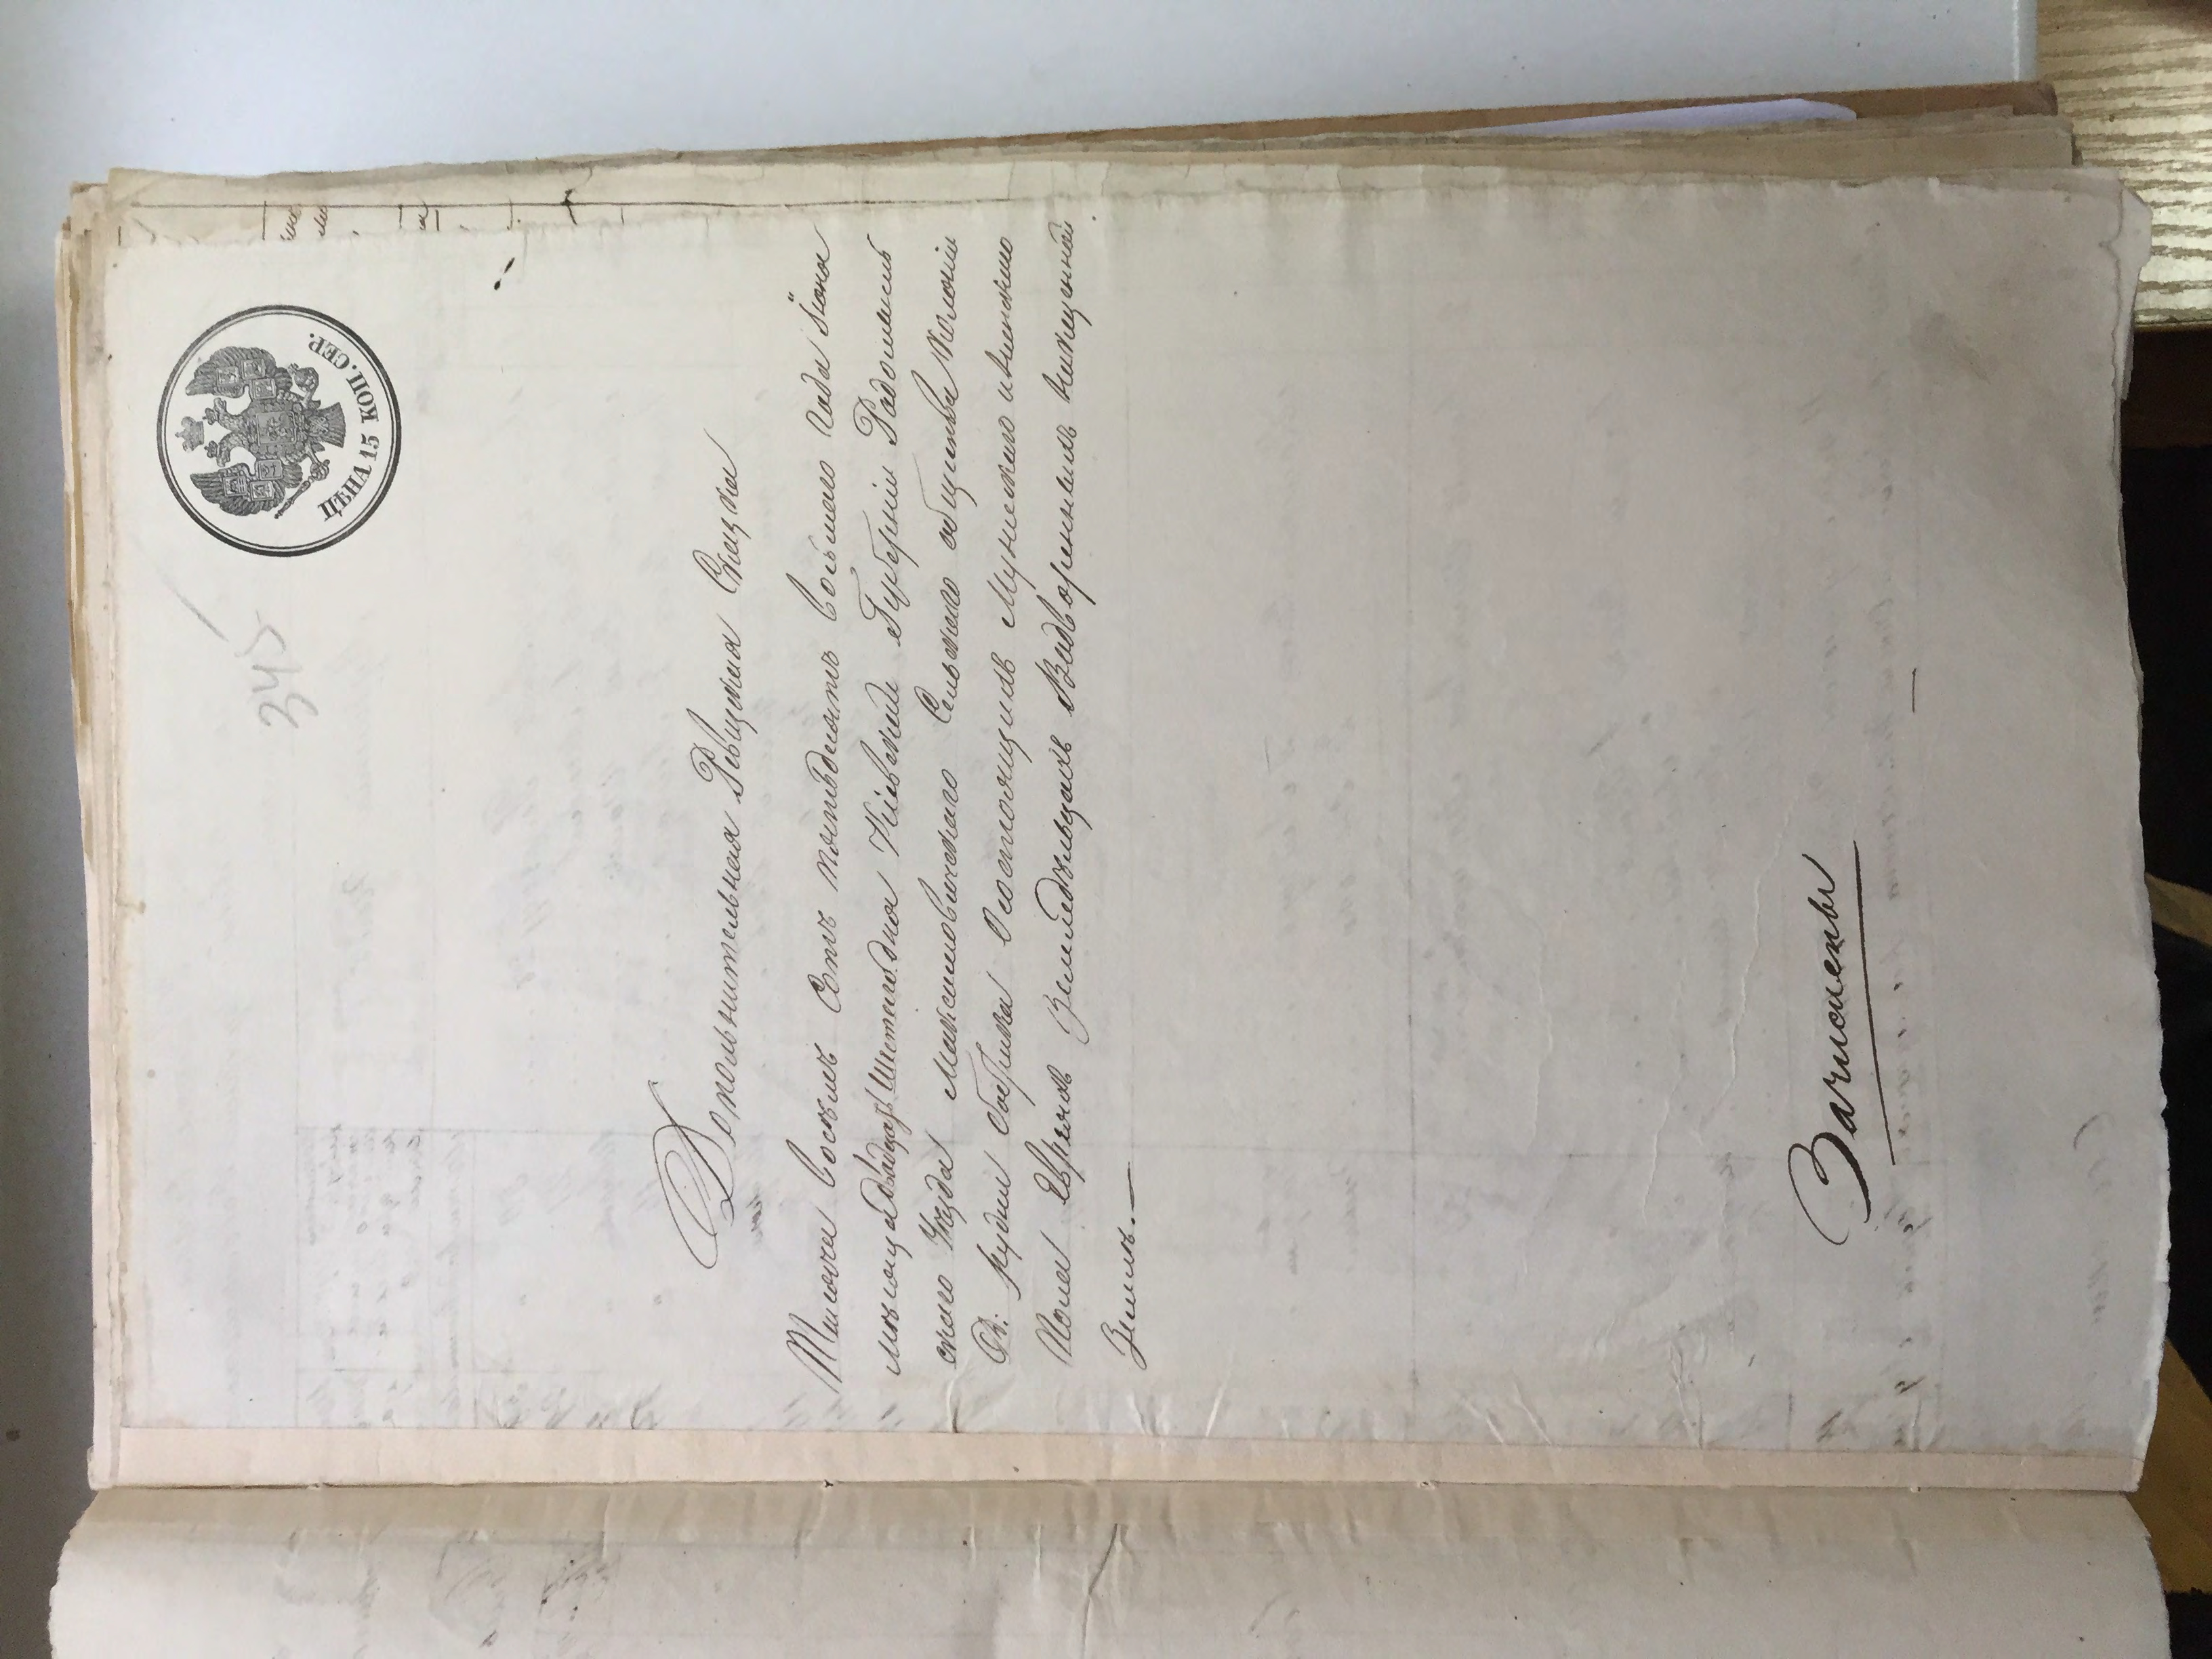 345
ЦѢНА 15 КОП. СЕР.
Дополнительная Ревизская Сказка
Тысяча восемь Сотъ пятьдесятъ восьмаго года Іюня
мѣсяца двадцать Шестаго дня Кіевской Губерніи Радомысль
скаго Уѣзда Максимовичскаго Сельскаго общества Колоніи
Рудни о состоящихъ Мужескаго и женскаго
Пола Евреяхъ Земледѣльцахъ Водворенныхъ на казенной
Землѣ.—
Зачислены